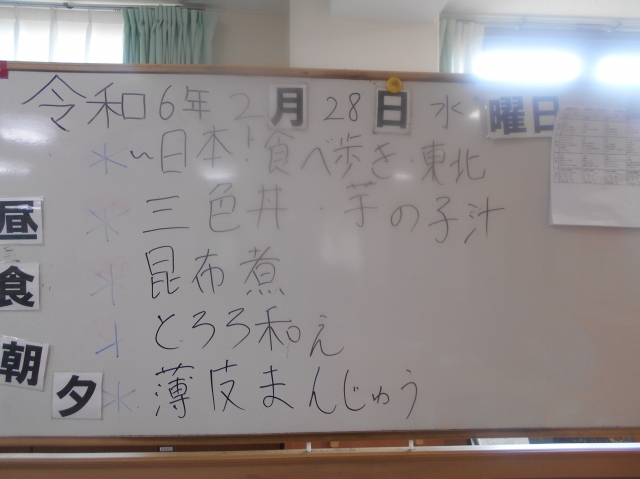 令和6年 2月 28日 水曜日
*~日本!食べ歩き・東北
昼食
* 三色丼・芋の子汁
* 昆布煮
* とろろ和え
朝
夕
* 薄皮まんじゅう